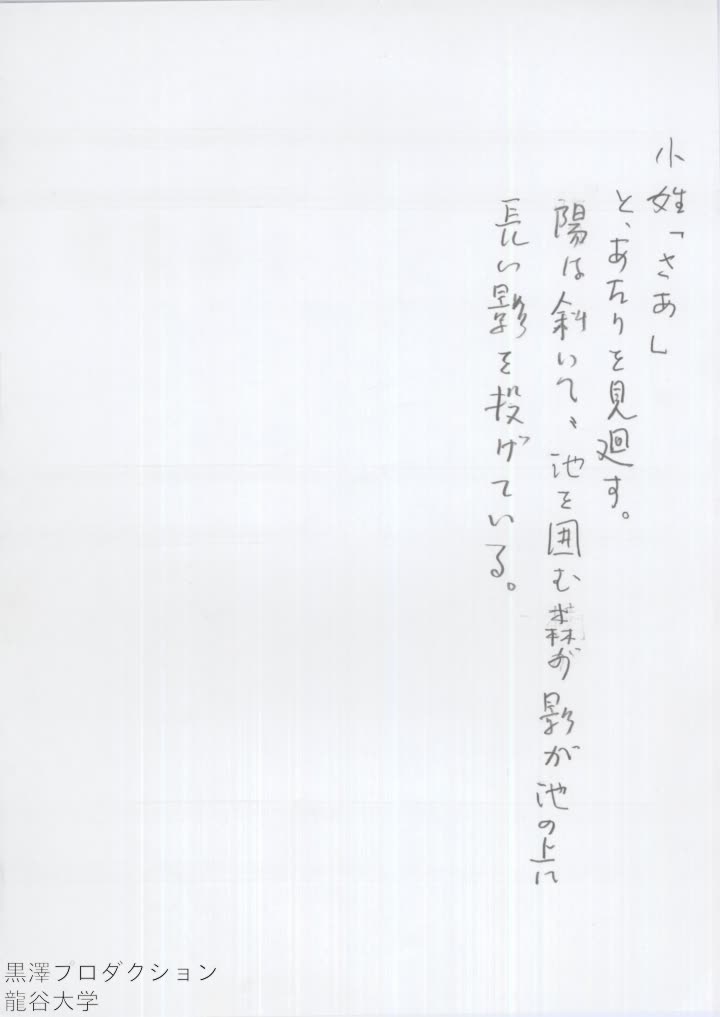 小姓「さあ」
と、あたりを見廻す。
陽は斜いて、池を囲む森が影が池の上に
長い影を投げている。
黒澤プロダクション
龍谷大学